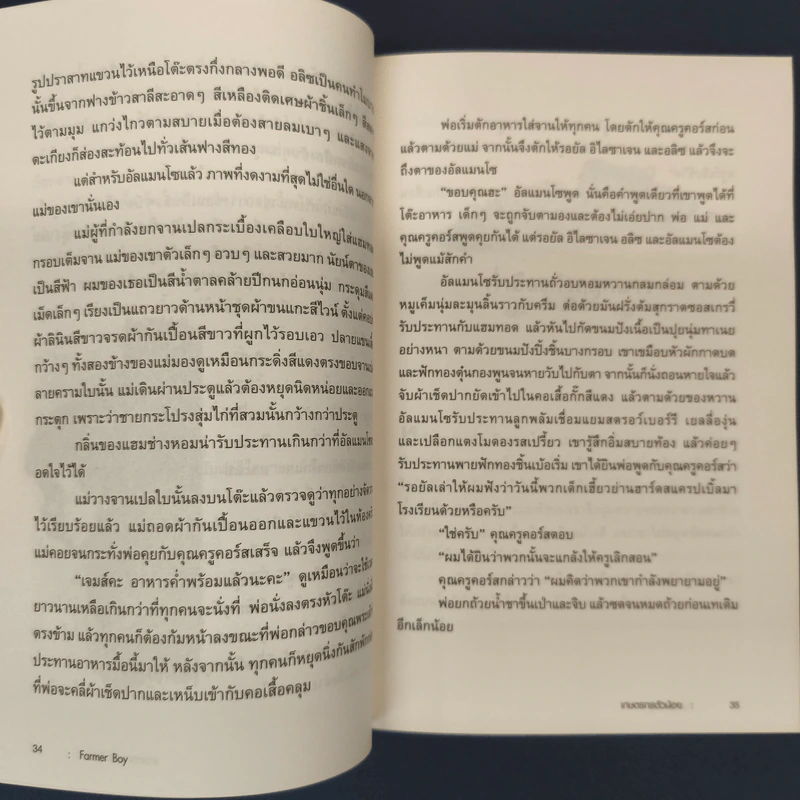 รูปปราสาทแขวนไว้เหนือโต๊ะตรงกึ่งกลางพอดี อลิซเป็นคนทำ
นั้นขึ้นจากฟางข้าวสาลีสะอาดๆ สีเหลืองติดเศษผ้าชิ้นเล็กๆ
ไว้ตามมุม แกว่งไกวตามสบายเมื่อต้องสายลมเบาๆ และแสง
ตะเกียงก็ส่องสะท้อนไปทั่วเส้นฟางสีทอง
แต่สำหรับอัลแมนโซแล้ว ภาพที่งดงามที่สุดไม่ใช่อื่นใด นอกจาก
แม่ของเขานั่นเอง
แม่ผู้ที่กำลังยกจานเปลกระเบื้องเคลือบใบใหญ่ใส่แฮม
กรอบเต็มจาน แม่ของเขาตัวเล็กๆ อวบๆ และสวยมาก นัยน์ตาของ
เป็นสีฟ้า ผมของเธอเป็นสีน้ำตาลคล้ายปีกนกอ่อนนุ่ม กระดุม
เม็ดเล็กๆ เรียงเป็นแถวยาวด้านหน้าชุดผ้าขนแกะสีไวน์ ตั้งแต่
ผ้าลินินสีขาวจรดผ้ากันเปื้อนสีขาวที่ผูกไว้รอบเอว ปลายแขน
กว้างๆ ทั้งสองข้างของแม่มองดูเหมือนกระดิ่งสีแดงตรงขอบจาน
ลายครามใบนั้น แม่เดินผ่านประตูแล้วต้องหยุดนิดหน่อยและออก
กระตุก เพราะว่าชายกระโปรงสุ่มไก่ที่สวมนั้นกว้างกว่าประตู
กลิ่นของแฮมช่างหอมน่ารับประทานเกินกว่าที่อัลแมนโซ
อดใจไว้ได้
แม่วางจานเปลใบนั้นลงบนโต๊ะแล้วตรวจดูว่าทุกอย่าง
ไว้เรียบร้อยแล้ว แม่ถอดผ้ากันเปื้อนออกและแขวนไว้ในห้อง
แม่คอยจนกระทั่งพ่อคุยกับคุณครูคอร์สเสร็จ แล้วจึงพูดขึ้นว่า
“เจมส์คะ อาหารค่ำพร้อมแล้วนะคะ” ดูเหมือนว่าจะใช้
ยาวนานเหลือเกินกว่าที่ทุกคนจะนั่งที่ พ่อนั่งลงตรงหัวโต๊ะ แม่นั่ง
ตรงข้าม แล้วทุกคนก็ต้องก้มหน้าลงขณะที่พ่อกล่าวขอบคุณพระ
ประทานอาหารมื้อนี้มาให้ หลังจากนั้น ทุกคนก็หยุดนิ่งกันสักพัก
ที่พ่อจะคลี่ผ้าเช็ดปากและเหน็บเข้ากับคอเสื้อคลุม
34 : Farmer Boy
พ่อเริ่มตักอาหารใส่จานให้ทุกคน โดยตักให้คุณครูคอร์สก่อน
แล้วตามด้วยแม่ จากนั้นจึงตักให้รอยัล อิไลซาเจน และอลิซ แล้วจึงจะ
ถึงตาของอัลแมนโซ
“ขอบคุณฮะ” อัลแมนโซพูด นั่นคือคำพูดเดียวที่เขาพูดได้ที่
โต๊ะอาหาร เด็กๆ จะถูกจับตามองและต้องไม่เอ่ยปาก พ่อ แม่ และ
คุณครูคอร์สพูดคุยกันได้ แต่รอยัล อิไลซาเจน อลิซ และอัลแมนโซต้อง
ไม่พูดแม้สักคำ
อัลแมนโซรับประทานถั่วอบหอมหวานกลมกล่อม ตามด้วย
หมูเค็มนุ่มละมุนลิ้นราวกับครีม ต่อด้วยมันฝรั่งต้มสุกราดซอสเกรวี่
รับประทานกับแฮมทอด แล้วหันไปกัดขนมปังเนื้อเป็นปุยนุ่มทาเนย
อย่างหนา ตามด้วยขนมปังปิ้งชิ้นบางกรอบ เขาเขมือบหัวผักกาดบด
และฟักทองตุ๋นกองพูนจนหายวับไปกับตา จากนั้นก็นั่งถอนหายใจแล้ว
จับผ้าเช็ดปากยัดเข้าไปในคอเสื้อกั๊กสีแดง แล้วตามด้วยของหวาน
อัลแมนโซรับประทานลูกพลัมเชื่อมแยมสตรอว์เบอร์รี เยลลี่องุ่น
และเปลือกแตงโมดองรสเปรี้ยว เขารู้สึกอิ่มสบายท้อง แล้วค่อยๆ
รับประทานพายฟักทองชิ้นเบ้อเริ่ม เขาได้ยินพ่อพูดกับคุณครูคอร์สว่า
“รอยัลเล่าให้ผมฟังว่าวันนี้พวกเด็กเฮี้ยวย่านฮาร์ดสแครปเบิ้ลมา
โรงเรียนด้วยหรือครับ”
“ใช่ครับ” คุณครูคอร์สตอบ
“ผมได้ยินว่าพวกนั้นจะแกล้งให้ครูเลิกสอน”
คุณครูคอร์สกล่าวว่า “ผมคิดว่าพวกเขากำลังพยายามอยู่”
พ่อยกถ้วยน้ำชาขึ้นเป่าและจิบ แล้วซดจนหมดถ้วยก่อนเทเติม
อีกเล็กน้อย
เกษตรกรตัวน้อย : 35